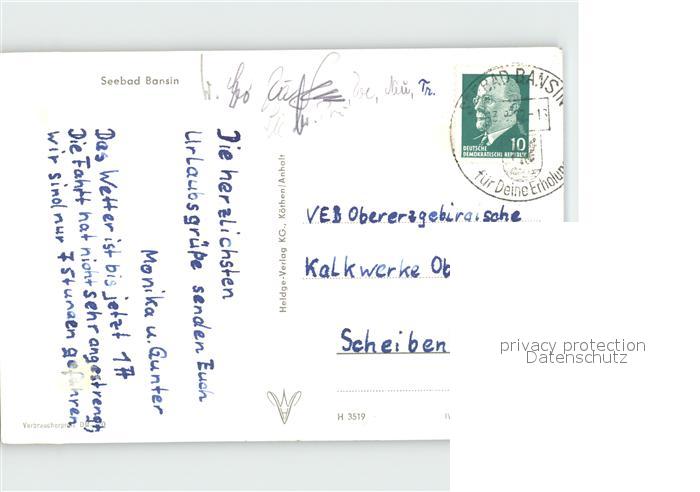 Seebad Bansin
Tr.
SEEBAD BANSIN
für Deine Erholun
10
DEUTSCHE
DEMOKRATISCHE REPUBLIK
Die herzlichsten
Urlaubsgrüße senden Euch
Monika u. Gunter
Das Wetter ist bis jetzt 1A
Die Fahrt hat nicht sehr angestrengt,
wir sind nur 7 Stunden gefahren
Heldge-Verlag KG., Köthen/Anhalt
VEB Obererzgebirgische
Kalkwerke Ob
Scheiben
privacy protection
Datenschutz
Verbraucherpreis
H 3519